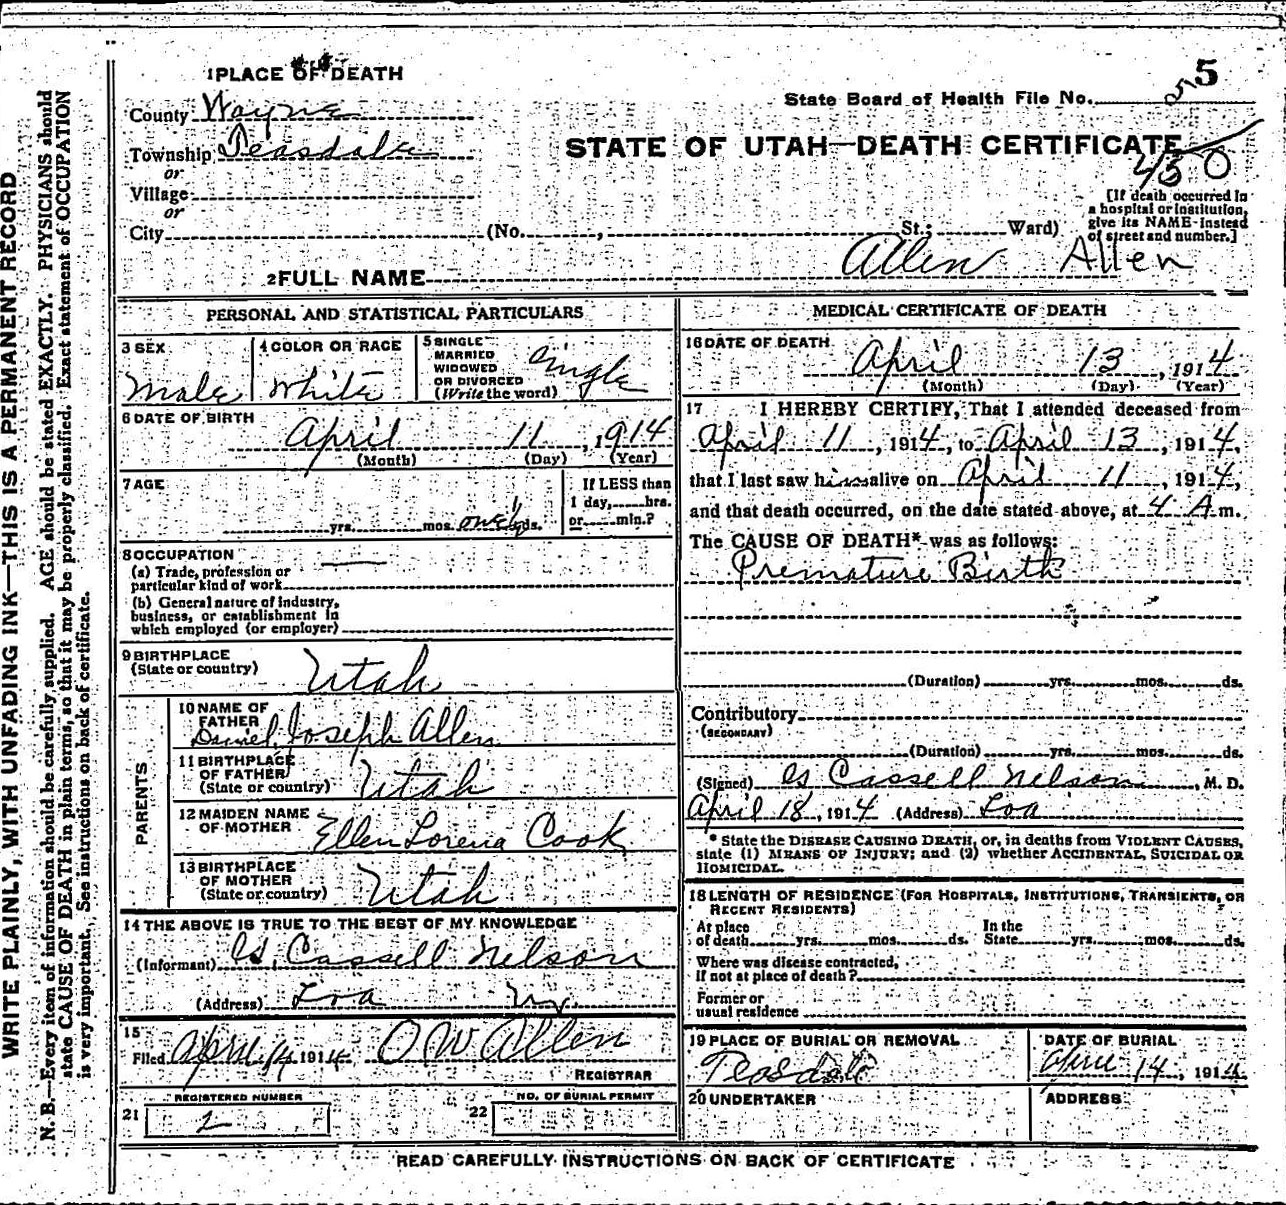 WRITE PLAINLY, WITH UNFADING INK—THIS IS A PERMANENT RECORD
N. B.—Every item of information should be carefully supplied. AGE should be stated EXACTLY. PHYSICIANS should
state CAUSE OF DEATH in plain terms, so that it may be properly classified. Exact statement of OCCUPATION
is very important. See instructions on back of certificate.
1 PLACE OF DEATH
County Wayne
Township Teasdale
or
Village
or
City (No. , St.; Ward)
State Board of Health File No. 5
STATE OF UTAH—DEATH CERTIFICATE
450
[If death occurred in
a hospital or institution,
give its NAME instead
of street and number.]
2 FULL NAME Allen Allen
PERSONAL AND STATISTICAL PARTICULARS
3 SEX Male
4 COLOR OR RACE White
5 SINGLE
MARRIED
WIDOWED
OR DIVORCED
(Write the word) Single
6 DATE OF BIRTH
April 11, 1914
(Month) (Day) (Year)
7 AGE
yrs. mos. ds.
If LESS than
1 day, hrs.
or min.?
8 OCCUPATION
(a) Trade, profession or
particular kind of work
(b) General nature of industry,
business, or establishment in
which employed (or employer)
9 BIRTHPLACE
(State or country) Utah
PARENTS
10 NAME OF
FATHER
Daniel Joseph Allen
11 BIRTHPLACE
OF FATHER
(State or country) Utah
12 MAIDEN NAME
OF MOTHER Ellen Lorena Cook
13 BIRTHPLACE
OF MOTHER
(State or country) Utah
14 THE ABOVE IS TRUE TO THE BEST OF MY KNOWLEDGE
(Informant) Cassell Nelson
(Address) Loa
15
Filed April 14 1914 O W Allen
REGISTRAR
REGISTERED NUMBER
21 2
NO. OF BURIAL PERMIT
22
MEDICAL CERTIFICATE OF DEATH
16 DATE OF DEATH
April 13, 1914
(Month) (Day) (Year)
17 I HEREBY CERTIFY, That I attended deceased from
April 11, 1914, to April 13, 1914,
that I last saw him alive on April 11, 1914,
and that death occurred, on the date stated above, at 4 A.m.
The CAUSE OF DEATH* was as follows:
Premature Birth
(Duration) yrs. mos. ds.
Contributory
(SECONDARY)
(Duration) yrs. mos. ds.
(Signed) Cassell Nelson, M. D.
April 18, 1914 (Address) Loa
* State the DISEASE CAUSING DEATH, or, in deaths from VIOLENT CAUSES,
state (1) MEANS OF INJURY; and (2) whether ACCIDENTAL, SUICIDAL OR
HOMICIDAL.
18 LENGTH OF RESIDENCE (FOR HOSPITALS, INSTITUTIONS, TRANSIENTS, OR
RECENT RESIDENTS)
At place In the
of death yrs. mos. ds. State yrs. mos. ds.
Where was disease contracted,
if not at place of death?
Former or
usual residence
19 PLACE OF BURIAL OR REMOVAL
Teasdale
DATE OF BURIAL
April 14, 1914
20 UNDERTAKER
ADDRESS
READ CAREFULLY INSTRUCTIONS ON BACK OF CERTIFICATE